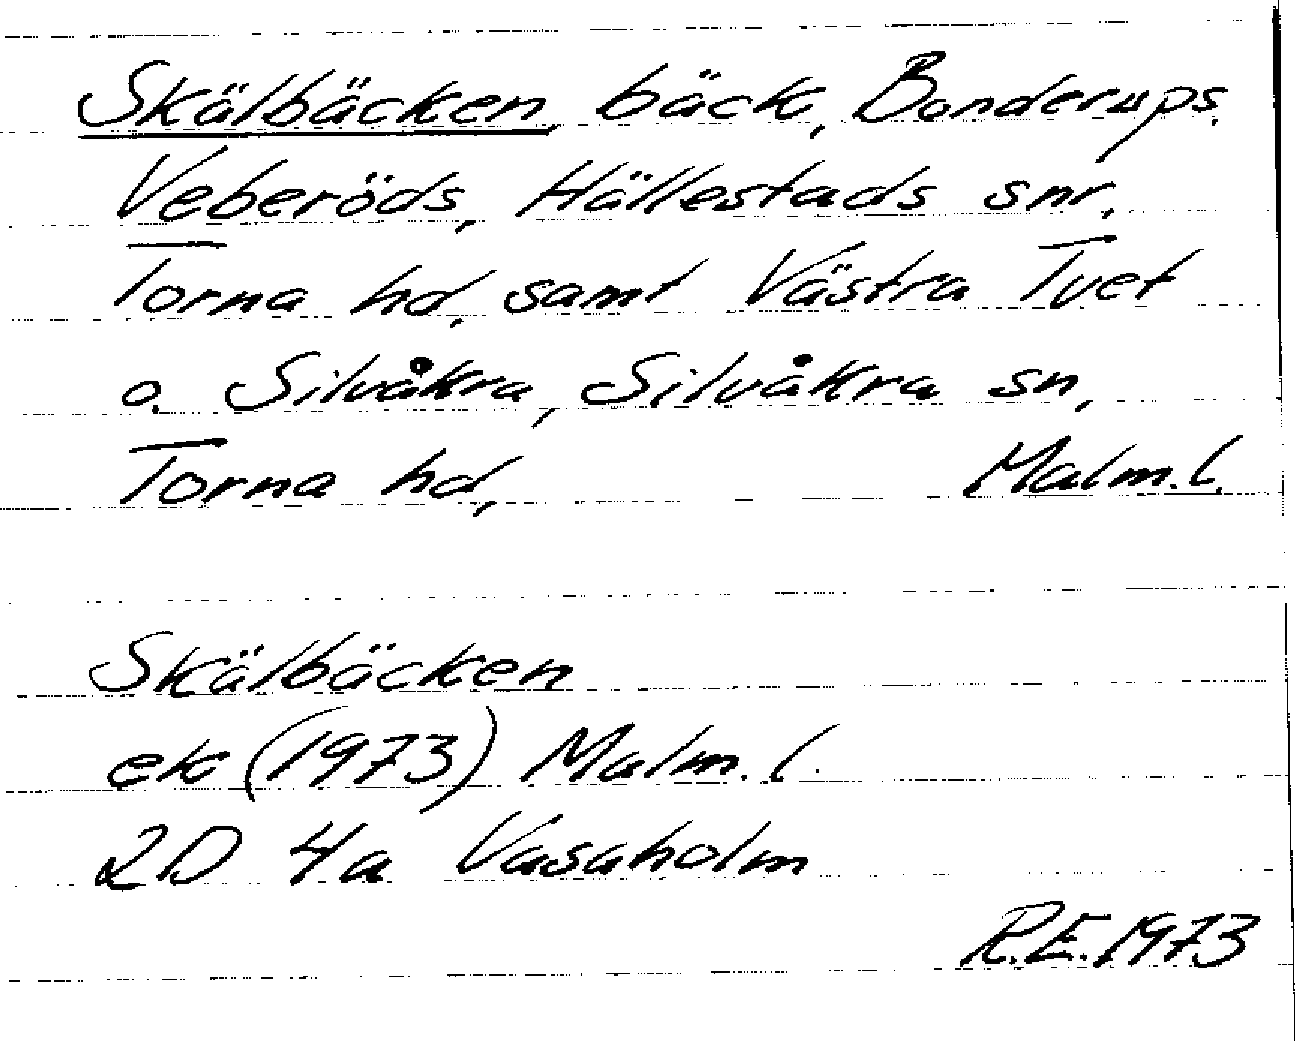 Skälbäcken, bäck, Bonderups,
Veberöds, Hällestads snr,
Torna hd, samt Västra Tvet
o. Silvåkra, Silvåkra sn,
Torna hd, Malm. l.
Skälbäcken
ek (1973) Malm. l.
2D 4a Vasaholm
R.E. 1973